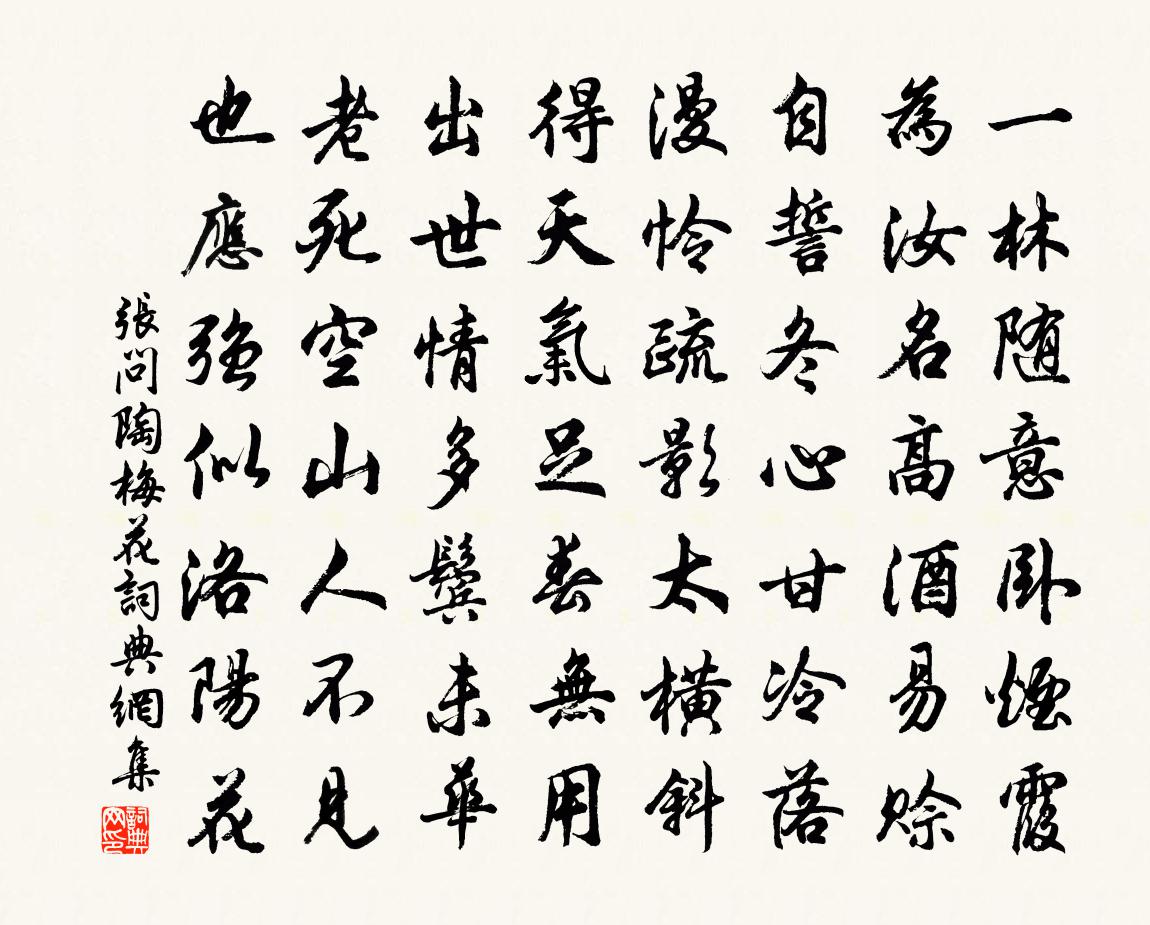 一林随意卧煙霞
為汝名高酒易賒
自誓冬心甘冷落
漫怜疏影太横斜
得天氣足春無用
出世情多鬓未華
老死空山人不見
也應强似洛陽花
張問陶梅花詞典網集
詞典網印